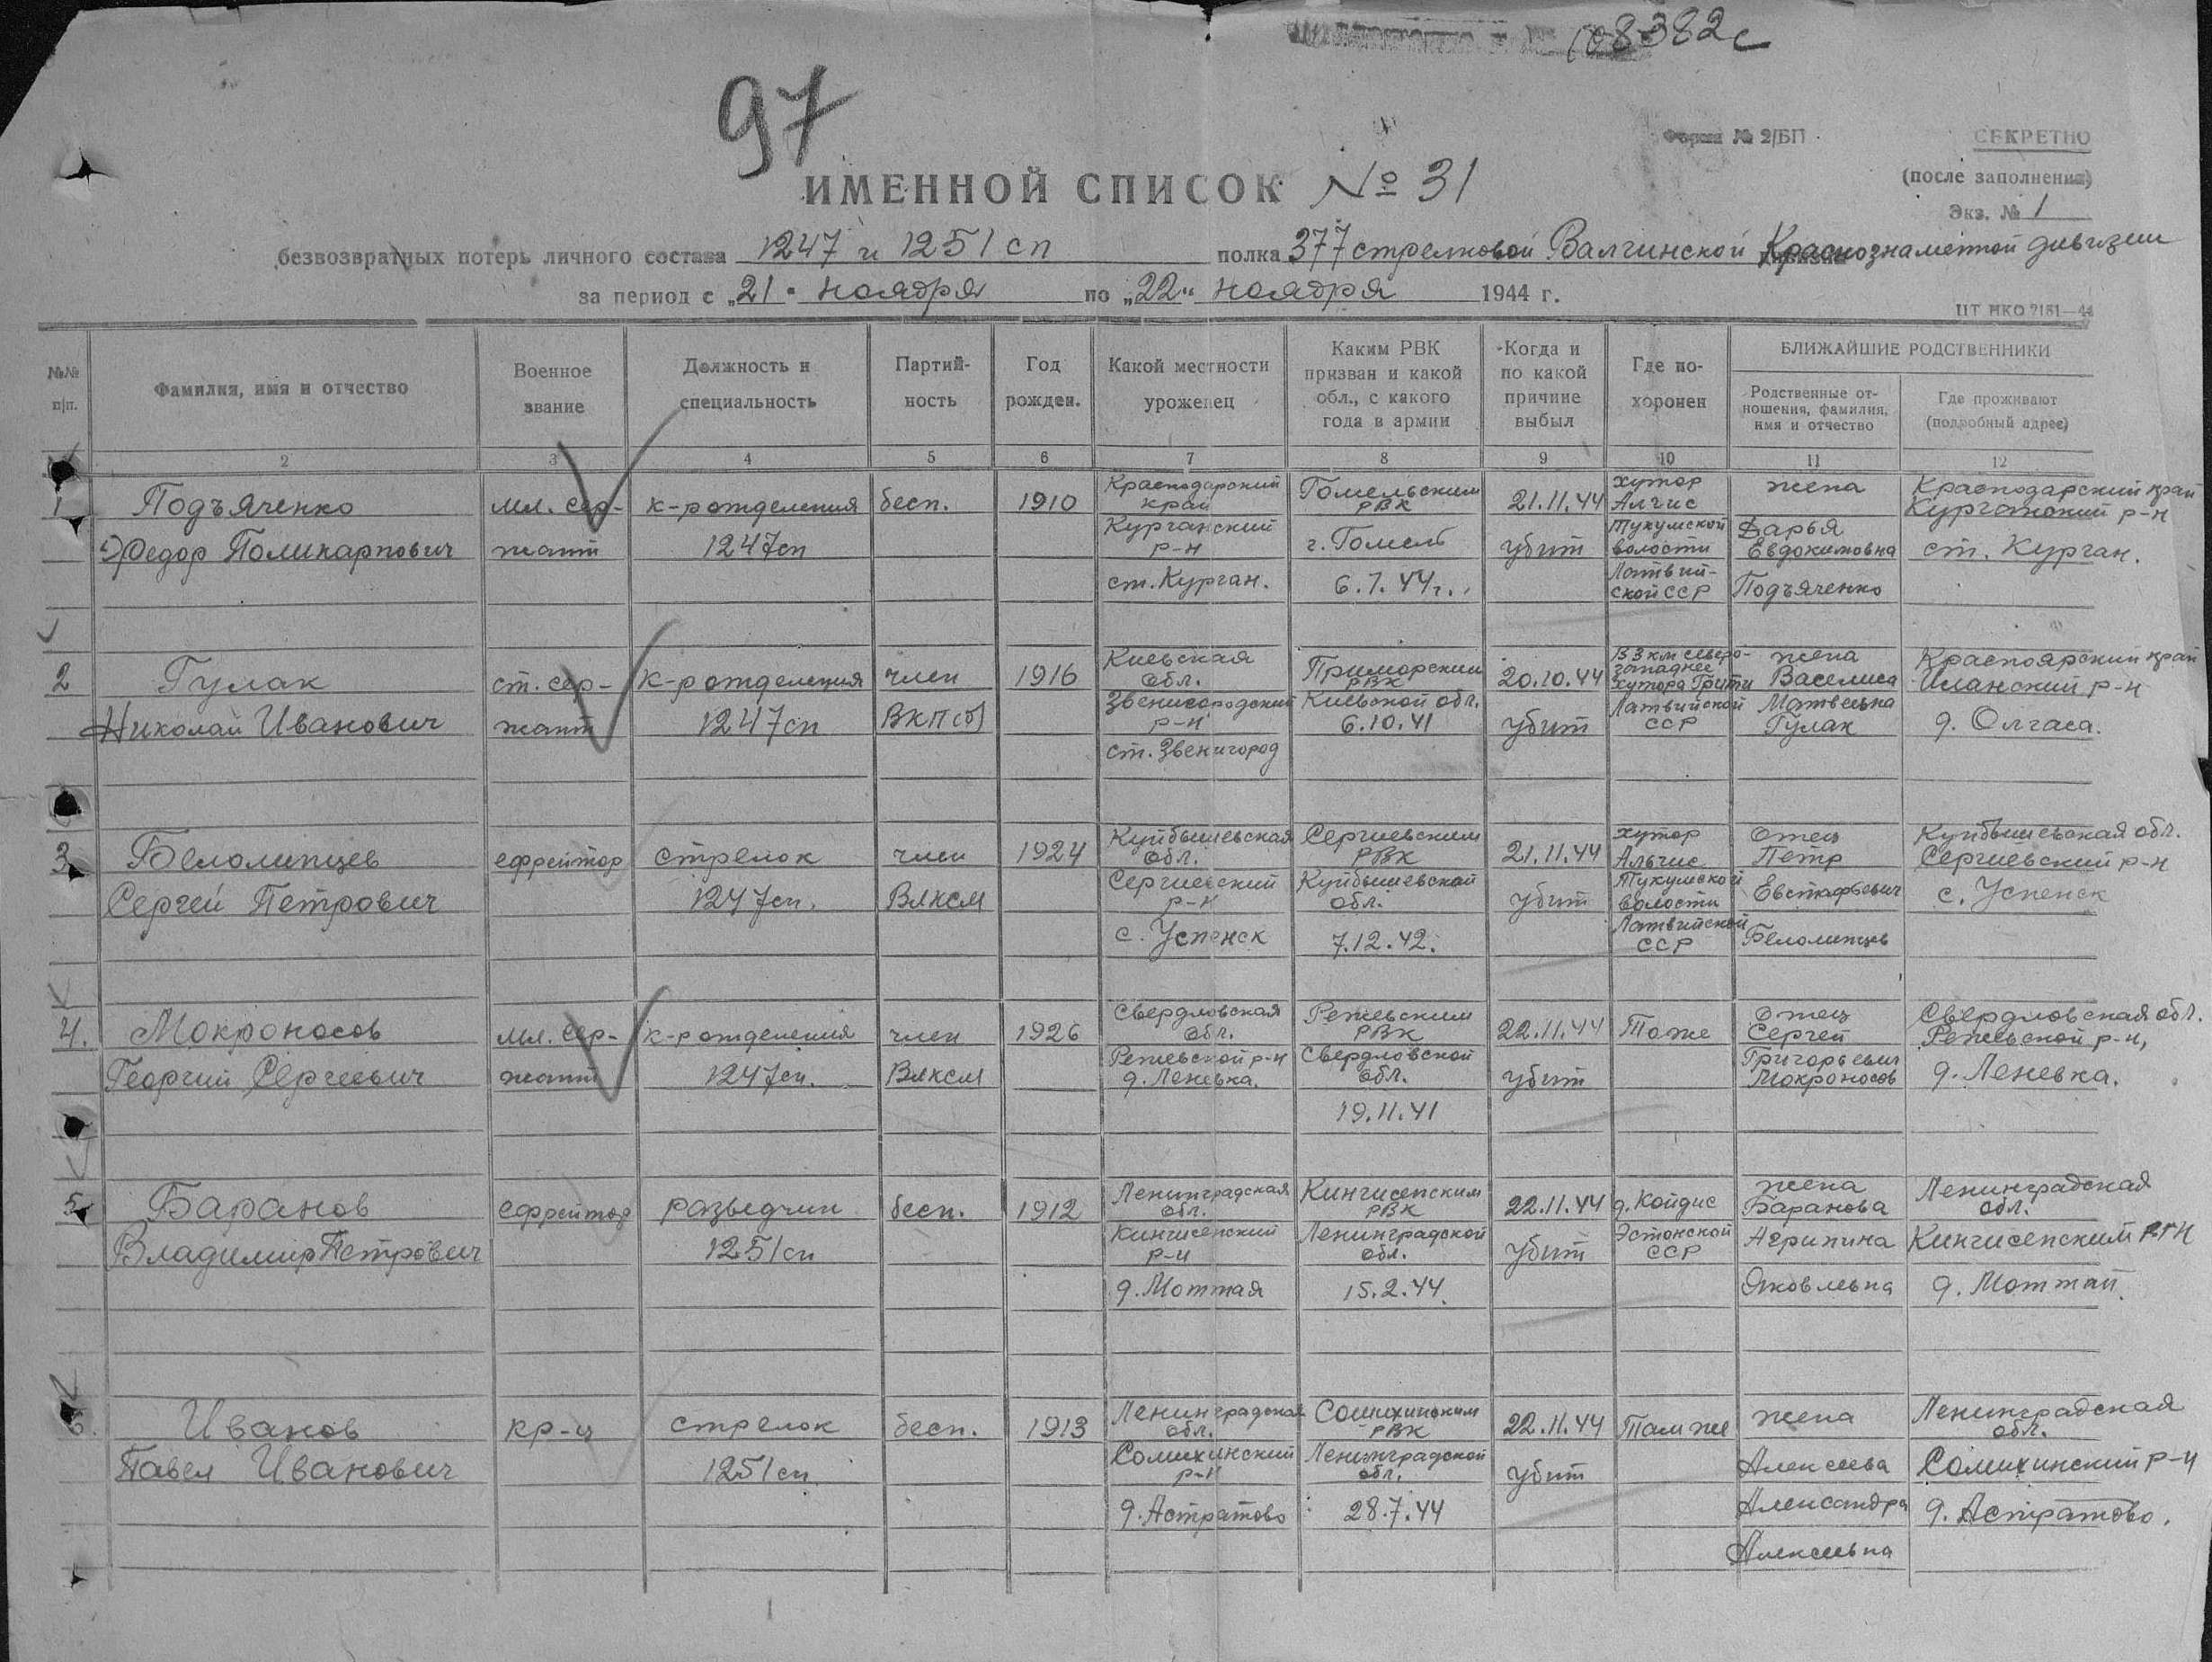 108382с
97
Форма № 2/БП
СЕКРЕТНО
(после заполнения)
Экз. № 1
ИМЕННОЙ СПИСОК № 31
безвозвратных потерь личного состава 1247 и 1251 сп полка 377 стрелковой Валгинской Краснознаменной дивизии
за период с „21" ноября по „22" ноября 1944 г.
ЦТ НКО 7151—44
№№ п/п.
Фамилия, имя и отчество
Военное звание
Должность и специальность
Партий-ность
Год рожден.
Какой местности уроженец
Каким РВК призван и какой обл., с какого года в армии
Когда и по какой причине выбыл
Где по-хоронен
БЛИЖАЙШИЕ РОДСТВЕННИКИ
Родственные от-ношения, фамилия, имя и отчество
Где проживают (подробный адрес)
2 3 4 5 6 7 8 9 10 11 12
1 Подъяченко мл. сер- к-р отделения бесп. 1910 Краснодарский край Гомельским РВК 21.11.44 хутор Алгис жена Краснодарский край Курганский р-н
Федор Поликарпович жант 1247сп Курганский р-н г. Гомель убит Тукумской волости Дарья Евдокимовна ст. Курган.
ст. Курган. 6.1.44г. Латвий-ской ССР Подъяченко
2 Гулак ст. сер- к-р отделения член 1916 Киевская обл. Приморским РВК 20.10.44 В 3 км северо-западнее хутора Грити жена Василиса Красноярский край Иланский р-н
Николай Иванович жант 1247сп ВКП(б) Звенигородский р-н Киевской обл. 6.10.41 убит Латвийской ССР Матвеевна Гулак д. Олгаса.
ст. Звенигород
3 Белолипцев ефрейтор стрелок член 1924 Куйбышевская обл. Сергиевским РВК 21.11.44 хутор Альгис отец Петр Куйбышевская обл. Сергиевский р-н
Сергей Петрович 1247сп. ВЛКСМ Сергиевский р-н Куйбышевской обл. убит Тукумской волости Евстафьевич с. Успенск
с. Успенск 7.12.42. Латвийской ССР Белолипцев
4. Мокроносов мл. сер- к-р отделения член 1926 Свердловская обл. Режевским РВК 22.11.44 Тоже отец Сергей Свердловская обл. Режевской р-н,
Георгий Сергеевич жант 1247сп. ВЛКСМ Режевской р-н д. Леневка. Свердловской обл. убит Григорьевич Мокроносов д. Леневка.
19.11.41
5 Баранов ефрейтор разведчик бесп. 1912 Ленинградская обл. Кингисепским РВК 22.11.44 д. Койдис жена Баранова Ленинградская обл.
Владимир Петрович 1251сп Кингисепский р-н Ленинградской обл. убит Эстонской ССР Агрипина Кингисепским р-н
д. Моттая 15.2.44. Яковлевна д. Моттай.
6. Иванов кр-ц стрелок бесп. 1913 Ленинградская обл. Сошихинским РВК 22.11.44 Там же жена Ленинградская обл.
Павел Иванович 1251сп Сошихинский р-н Ленинградской обл. убит Алексеева Сошихинский р-н
д. Астратово 28.7.44 Александра д. Астратово.
Алексеевна